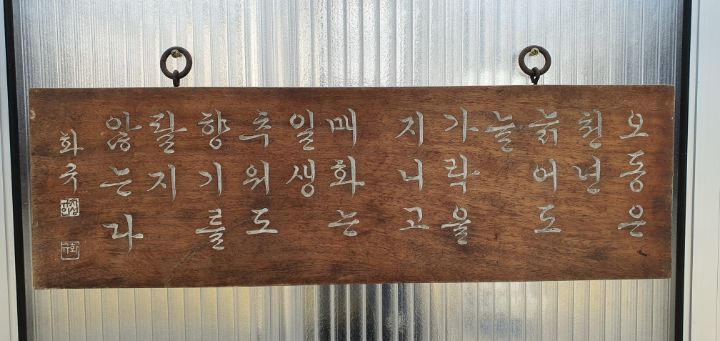 오동은
천년
늙어도
늘
가락을
지니고
매화는
일생
추워도
향기를
팔지
않는다
화국